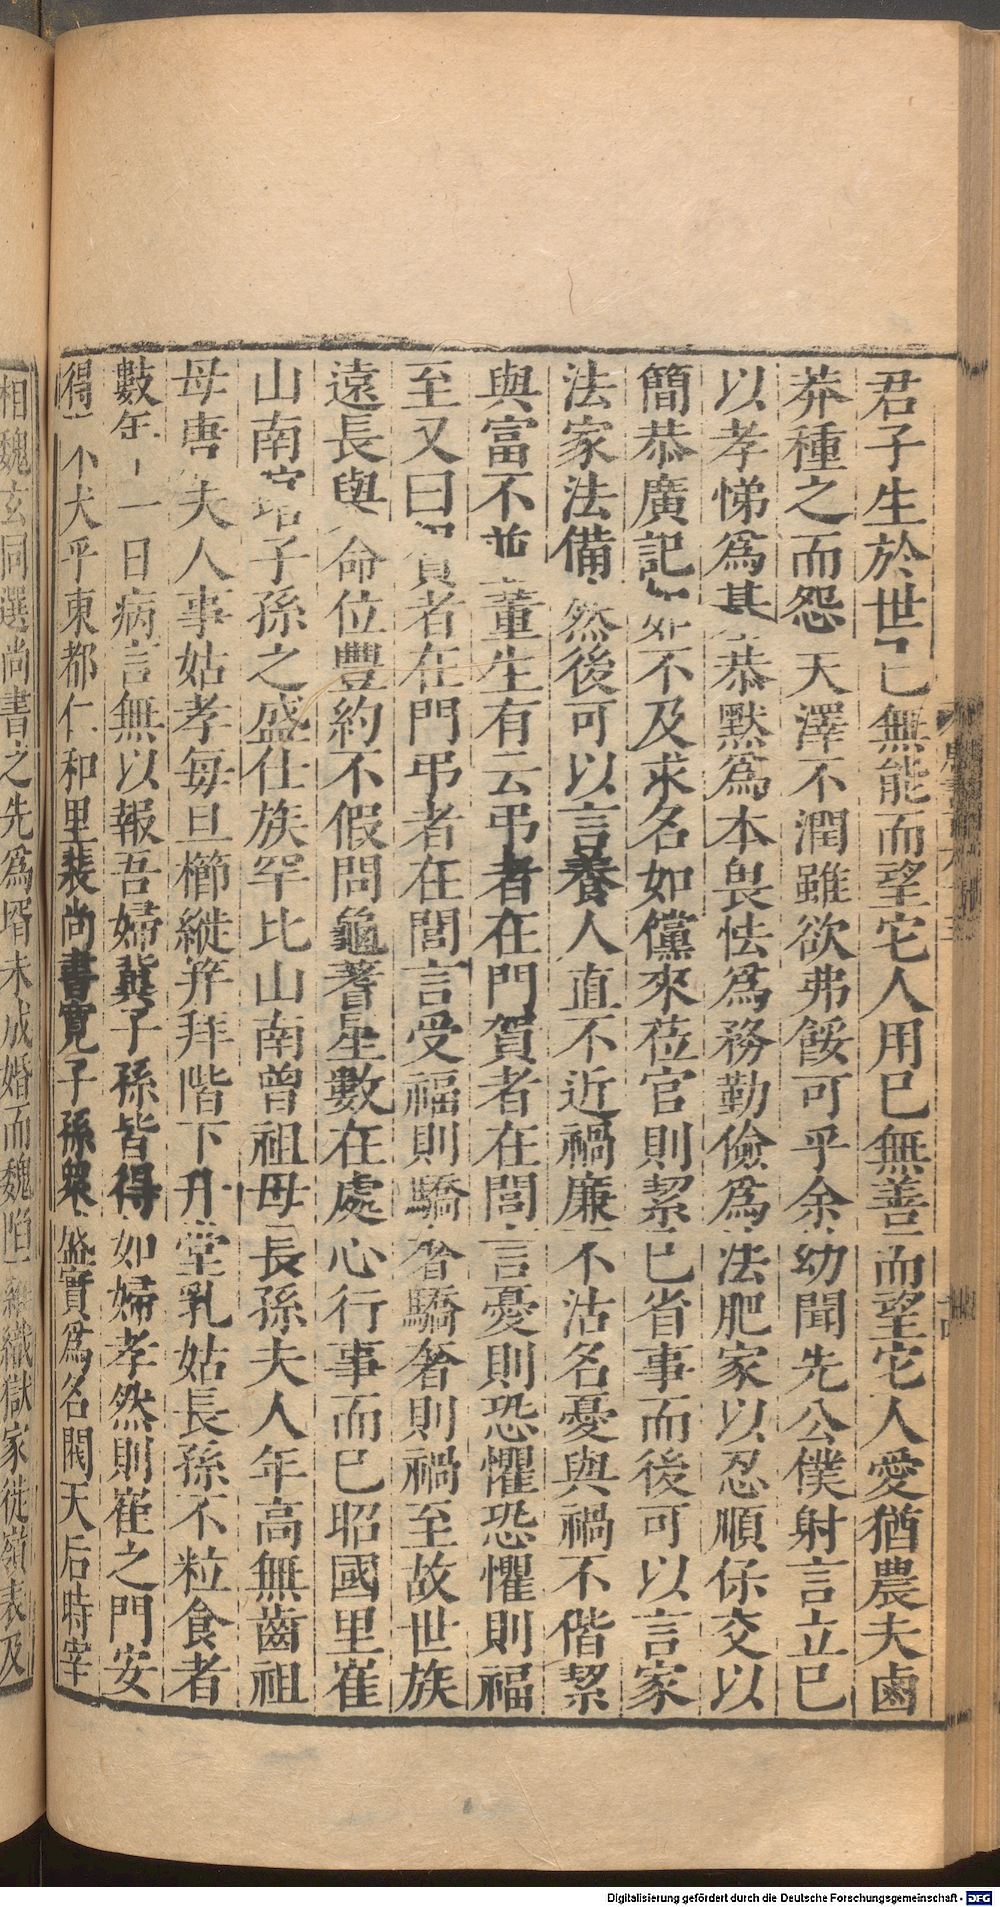 君子生於世己無能而望它人用已無善而望它人愛猶農夫鹵
莽種之而怨天澤不潤雖欲弗餒可乎余幼聞先公僕射言立已
以孝悌為基恭默為本畏怯為務勤儉為法肥家以忍順保交以
簡恭廣記如不及求名如儻來莅官則絜已省事而後可以言家
法家法備然後可以言養人直不近禍廉不沽名憂與禍不偕絜
與富不並董生有云弔者在門賀者在閭言憂則恐懼恐懼則福
至又曰賀者在門弔者在閭言受福則驕奢驕奢則禍至故世族
遠長與命位豐約不假問龜蓍星數在處心行事而已昭國里崔
山南琯子孫之盛仕族罕比山南曾祖母長孫夫人年高無齒祖
母唐夫人事姑孝每旦櫛縰笄拜階下升堂乳姑長孫不粒食者
數年一日病言無以報吾婦冀子孫皆得如婦孝然則崔之門安
得不大乎東都仁和里裴尚書寬子孫衆盛實為名閥天后時宰
相魏玄同選尚書之先為壻未成婚而魏陷羅織獄家徙嶺表及
Digitalisierung gefördert durch die Deutsche Forschungsgemeinschaft - DFG